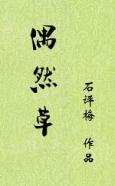 偶然草
石评梅 作品